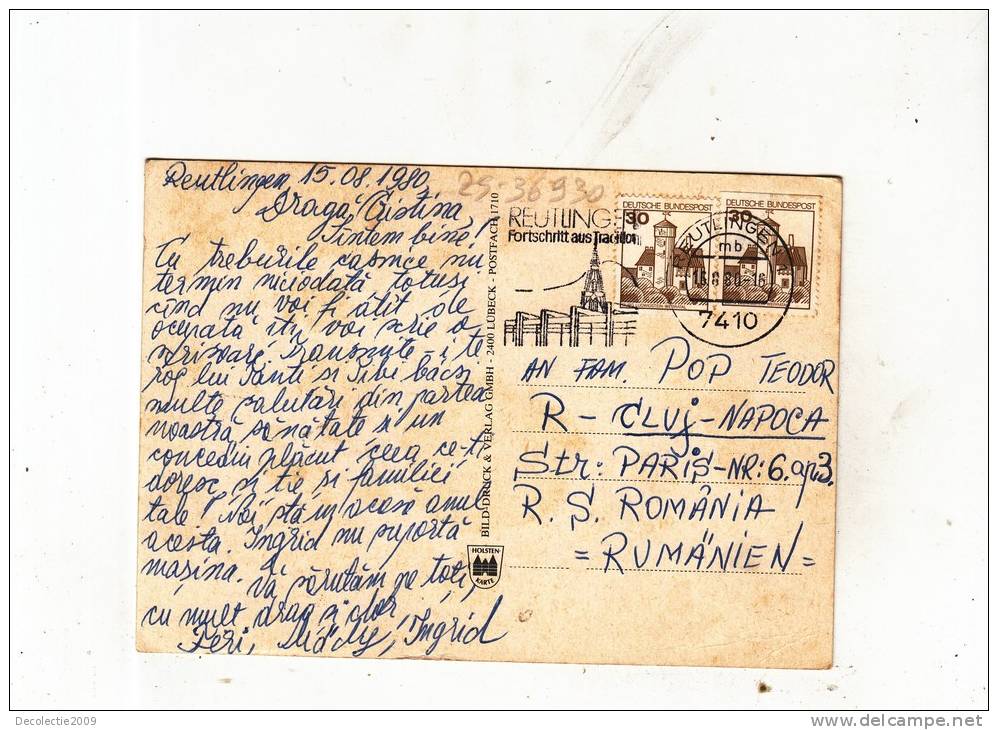 Reutlingen, 15.08.1980
Dragă Cristina,
Sîntem bine!
Cu treburile casnice nu
termin niciodată totuși
cînd nu voi fi atît de
ocupată îți voi scrie o
scrisoare. Transmite și te
rog lui Tanti și Tibi bácsi
multe salutări din partea
noastră sănătate și un
concediu plăcut ceea ce-ți
doresc și ție și familiei
tale! Noi stăm acasă anul
acesta. Ingrid nu suportă
mașina.
Vă sărutăm pe toți,
cu mult drag și dor
Feri, Mády, Ingrid
BILD-DRUCK & VERLAG GMBH - 2400 LÜBECK - POSTFACH 1710
HOLSTEN-
KARTE
25-36930
REUTLINGE
Fortschritt aus Tradition
30
DEUTSCHE BUNDESPOST
30
DEUTSCHE BUNDESPOST
REUTLINGEN
mb
7410
AN FAM. POP TEODOR
R - CLUJ-NAPOCA
Str: PARIS-NR: 6. ap 3.
R. S. ROMÂNIA
= RUMÄNIEN =
Decolectie2009
www.delcampe.net